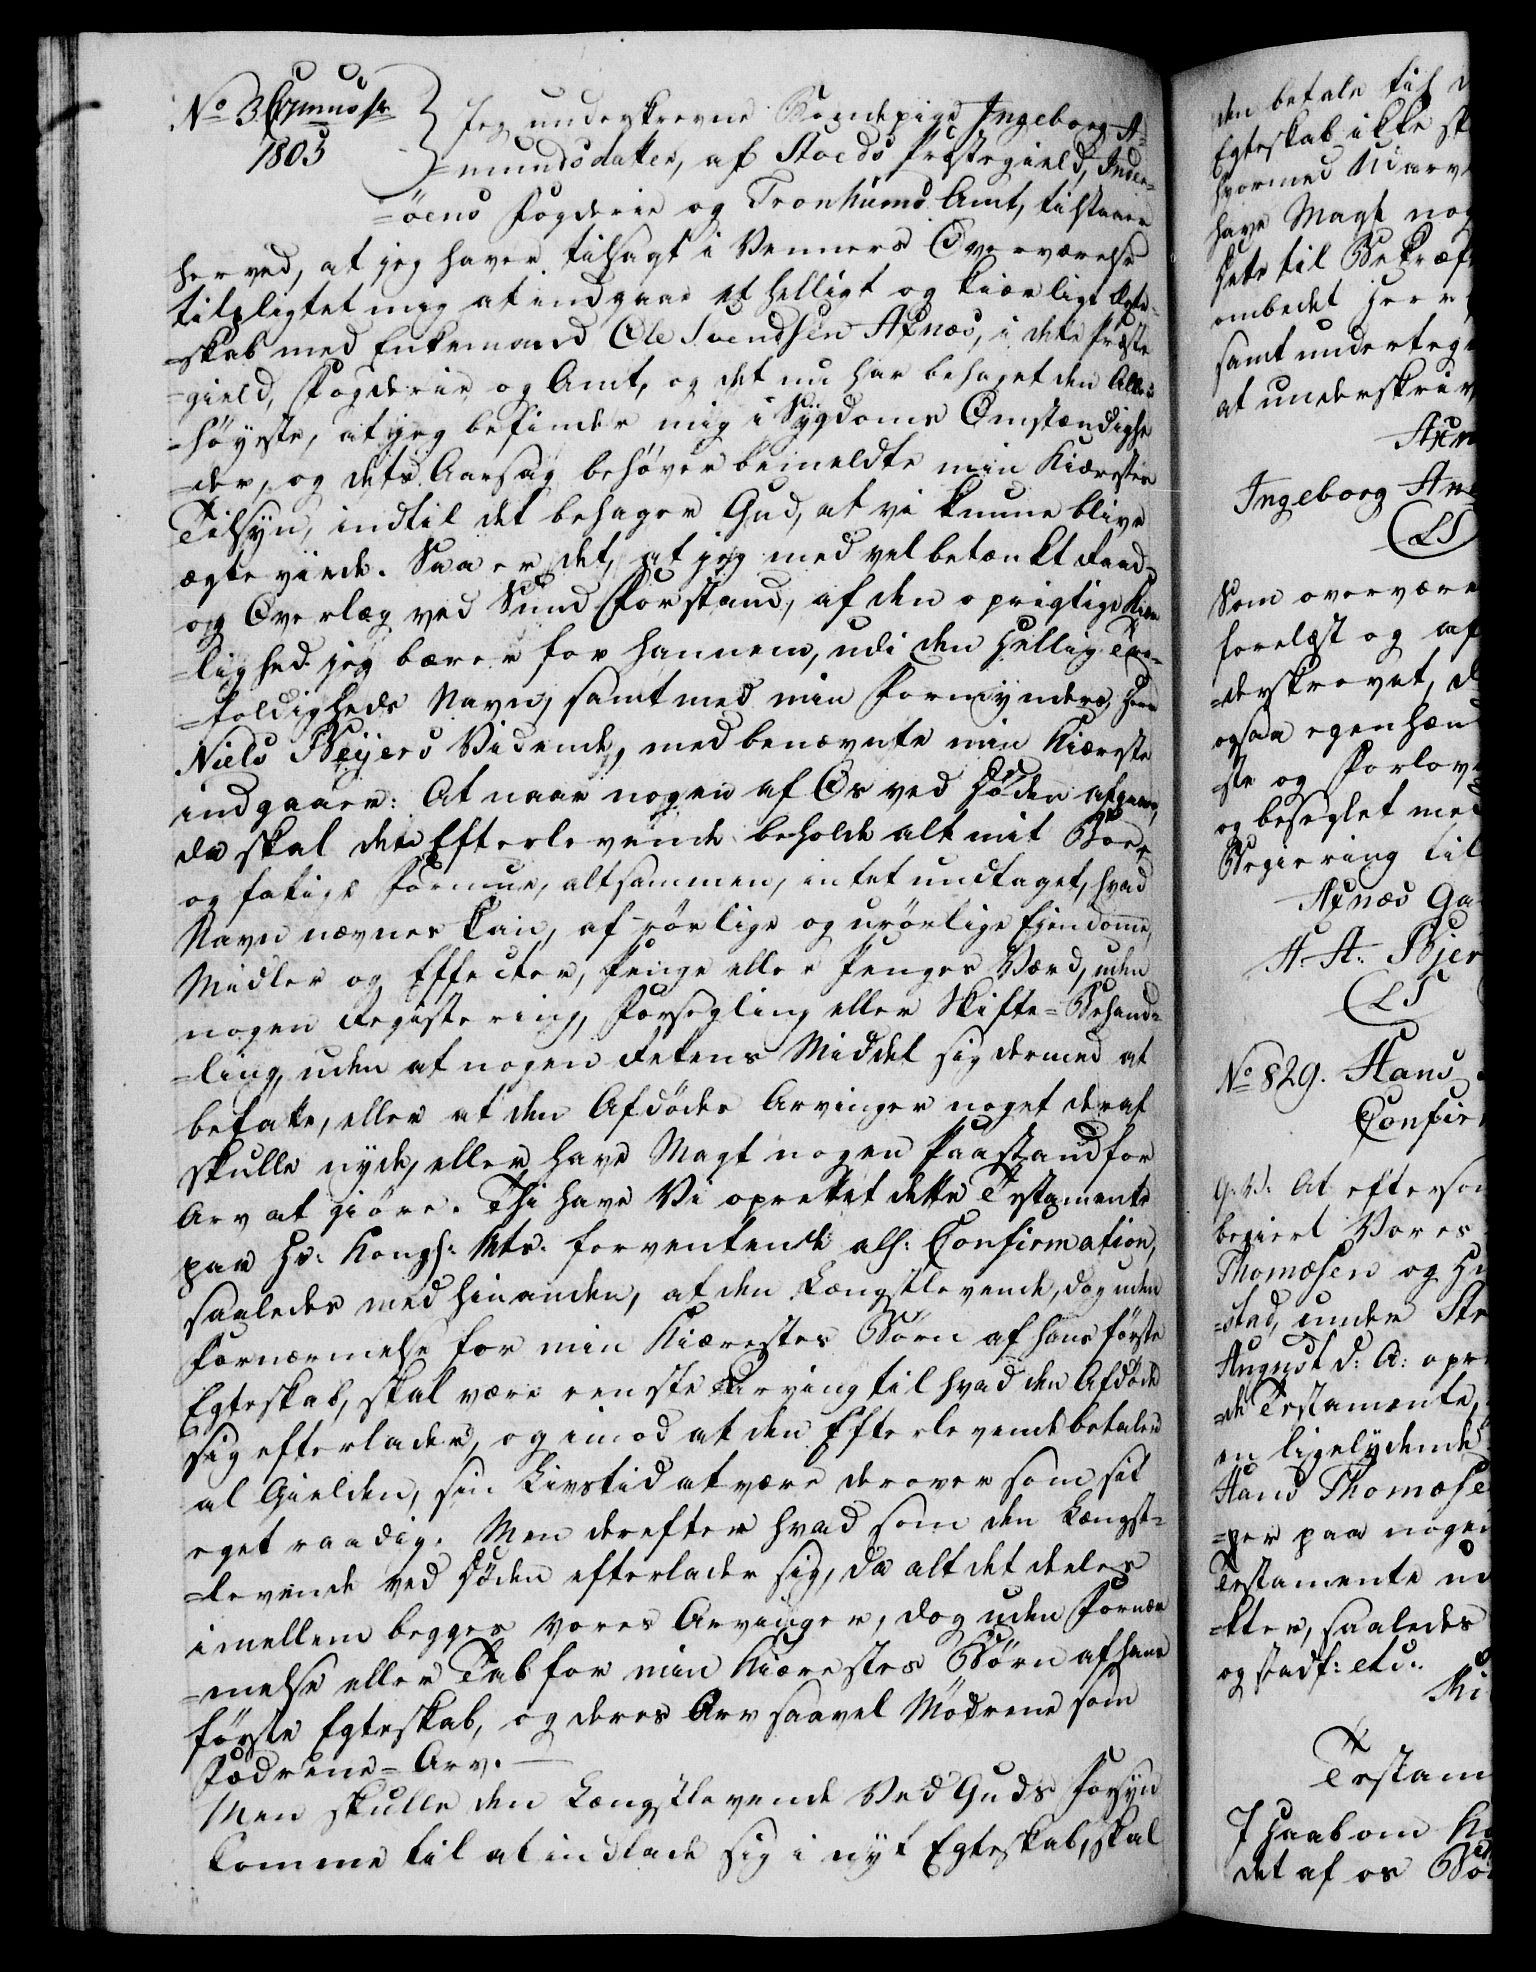 No 3 Grunds
1803
Jeg underskrevne Bondepige Ingeborg A-
=mundsdatter, af Stoeds Præstegield, Inder-
=öens Fogderie og Tronhiems Amt, tilstaaer
herved, at jeg haver tilsagt i Venners Overværelse
tilpligtet mig at indgaae et helligt og kierligt Egte-
=skab med Enkemand Ole Svendsen Axnæs, i dette Præste
=gield, Fogderie og Amt, og det nu har behaget den Aller-
=höyeste, at jeg befinder mig i Sygdoms Omstændighe
=der, og dets Aarsag behöver bemeldte min Kiærestes
Tilsyn, indtil det behager Gud, at vi kunne blive
ægteviede. Saa er det, at jeg med vel betænkt Raad
og Overlæg ved Sund Forstand, af den oprigtige Kier
=lighed jeg bærer for hannem, udi den hellig Tre-
=foldigheds Navn, samt med min Formynders Herr
Niels Beyers Vidende, med benævnte min Kiæreste
indgaaer: At naar nogen af Os ved Döden afgaaer,
da skal den Efterlevende beholde alt mit Boe
og fatige Formue, altsammen, intet undtaget, hvad
Navn nævnes kan, af rörlige og urörlige Ejendomme,
Midler og Effecter, Penge eller Penges Værd, uden
nogen Registering, Forsegling eller Skifte-Behand-
=ling, uden at nogen Rettens Middel sig dermed at
befatte, eller at den Afdödes Arvinger noget deraf
skulle nyde, eller have Magt nogen Paastand for
Arv at giöre. Thi have Vi oprettet dette Testamente
paa Hs: Kongl: Mts: forventende allr: Confirmation,
saaledes med hinanden, at den Længstlevende, dog uden
Fornærmelse for min Kiærestes Börn af hans förste
Egteskab, skal være eeneste Arving til hvad den Afdöde
sig efterlader, og imod at den Efterlevende betaler
al Gielden, sin Livstid at være derover som sit
eget raadig. Men derefter hvad som den Længst-
=levende ved Döden efterlader sig, da alt det deeles
imellem begges vores Arvinger, dog uden Fornær
=melse eller Tab for min Kiærestes Börn af hans
förste Egteskab, og deres Arv saavel Mödrene som
Fædrene-Arv.
Men skulle den Længstlevende Ved Guds Forsyn
komme til at indlade sig i nyt Egteskab, skal
den betale til
Egteskab ikke
hvormed Udarv
have Magt nog
hets til Bekræf
ombedet Herr
samt underteg
at underskriv
Axn
Ingeborg Am
(LS)
Som overvære
forelæst og af
=derskrevet, d
ogsaa egenhæn
=ste og Forlov
og beseglet med
Begiering til
Axnæs Ga
A. A. Bjer
(LS
No 829. Hans
Confir
G. V. At eftersom
begiert Vores
Thomæsen og H
=stad, under
August d: A: opr
=de Testamente,
en ligelydende
Hans Thomæse
=per paa nogen
Testamente
=kter, saaledes
og stadf: etc.
Testam
I Haab om K
det af os Bö